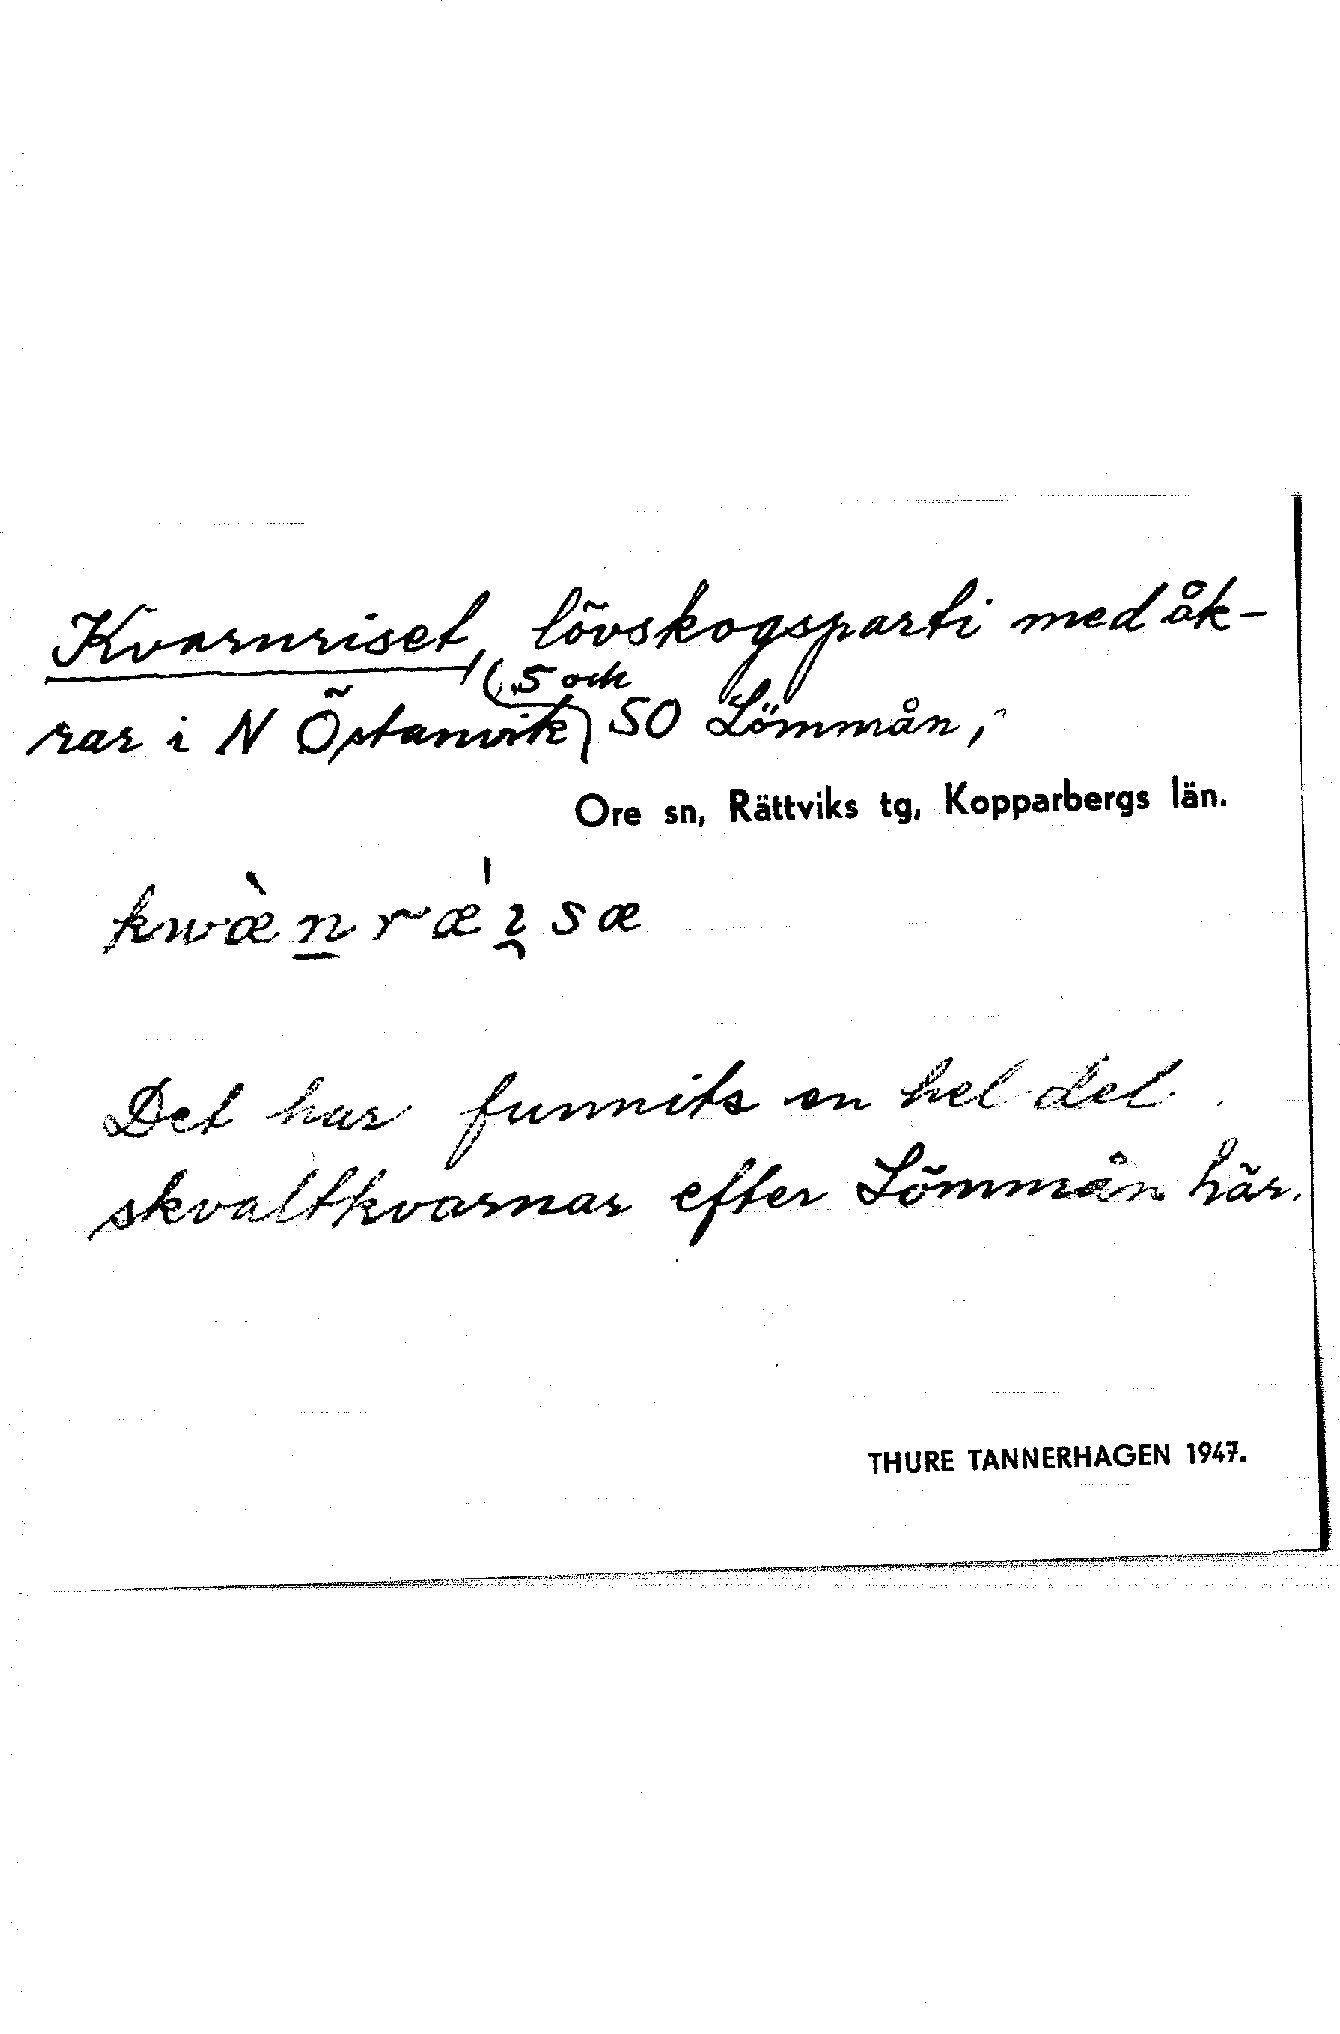 Kvarnriset, lövskogsparti med åk-
rar i N Östanvik, S och SO Lömmån,
Ore sn, Rättviks tg, Kopparbergs län.
kwæ̀n̲ræ̍ı̯sæ
Det har funnits en hel del
skvaltkvarnar efter Lömmån här.
THURE TANNERHAGEN 1947.